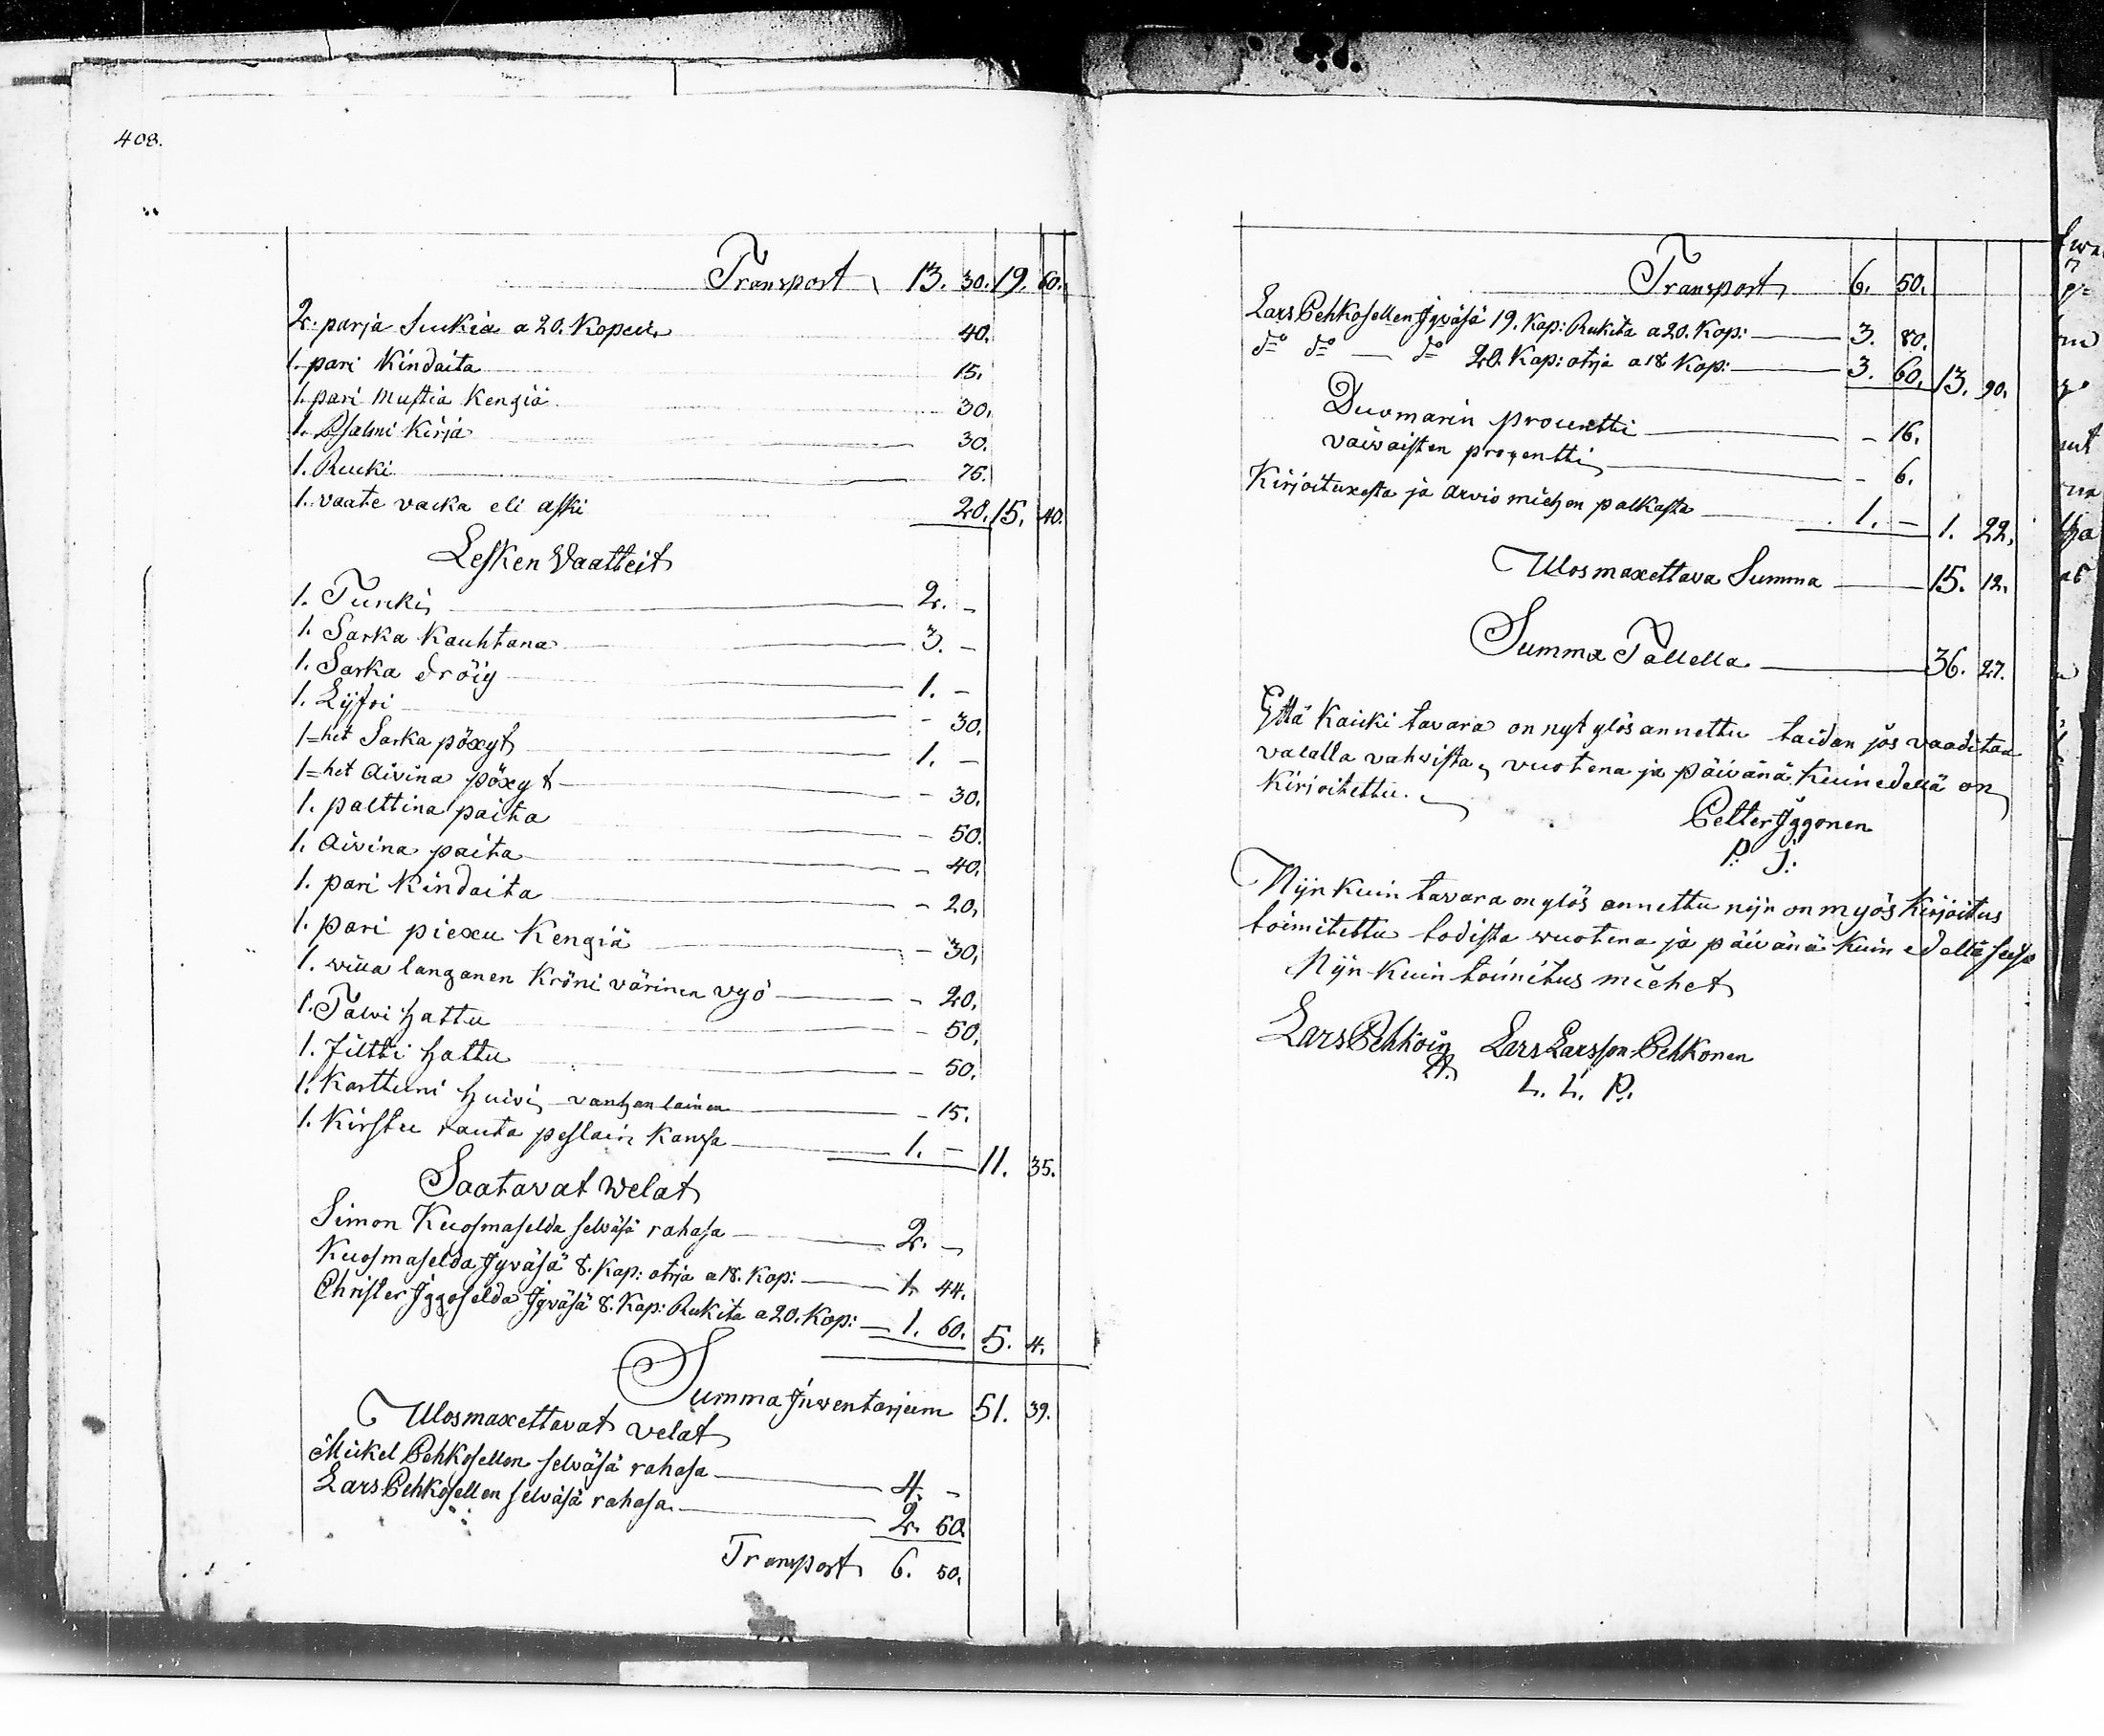 408.
Transport 13. 30. 19. 60.
2. parja Sukia a 20. Kopeic 40.
1. pari Kindaita 15.
1. pari mustia Kengiä 30.
1. Psalmi Kirja 30.
1. Rucki 75.
1. vaate vacka eli aski 20. 15. 40.
Lesken Vaatteit
1. Turcki 2. –
1. Sarka Kauhtana 3. –
1. Sarka dröig 1. –
1. Lijfvi – 30.
1=het Sarka pöxyt 1. –
1=het Aivina pöxyt – 30.
1. palttina paita – 50.
1. Aivina paita – 40.
1. pari Kindaita – 20.
1. pari piexu Kengiä – 30.
1. willa langanen Kröni värinen vyö – 20.
1. Talvi hattu – 50.
1. Filtti hattu – 50.
1. Karttuni Huivi vanhanlainen – 15.
1. Kirstu rauta peslain Kanssa 1. – 11. 35.
Saatavat Welat
Simon Kuosmaselda selväsä rahasa 2. –
Kuosmaselda Jyväsä 8. Kap: otrja a 18. Kop: 1. 44.
Christer Jggoselda Jyväsä 8. Kap: Rukita a 20. Kop: 1. 60. 5. 4.
Summa Juventarjum 51. 39.
Ulosmaxettavat velat
Mickel Pehkosellen selväsä rahasa 4. –
Lars Pehkosellen selväsä rahasa 2. 50.
Transport 6. 50.
Transport 6. 50.
Lars Pehkosellen Jyväsä 19. Kap: Rukita a 20. Kop: 3. 80.
do do — do 20. Kap: otrja a 18 Kop: 3. 60. 13. 90.
Duomarin prouentti – 16.
vaivaisten prosentti – 6.
Kirjoituxesta ja arvio miehen palkasta 1. – 1. 22.
Ulosmaxettava Summa 15. 12.
Summa Tallella 36. 27.
Että Kaicki tavara on nyt ylös annettu taidan jos vaaditaan
valalla vahvista, vuotena ja päivänä Kuin edellä on
Kirjoitettu.
Petter Jggonen
P. J.
Nijn Kuin tavara on ylös annettu nijn on myös Kirjoitus
toimitettu todista wuotena ja päivänä Kuin edellä seiso
Nijn Kuin toimitus miehet
Lars Pehkoin Lars Larsson Pehkonen
L. L. P.